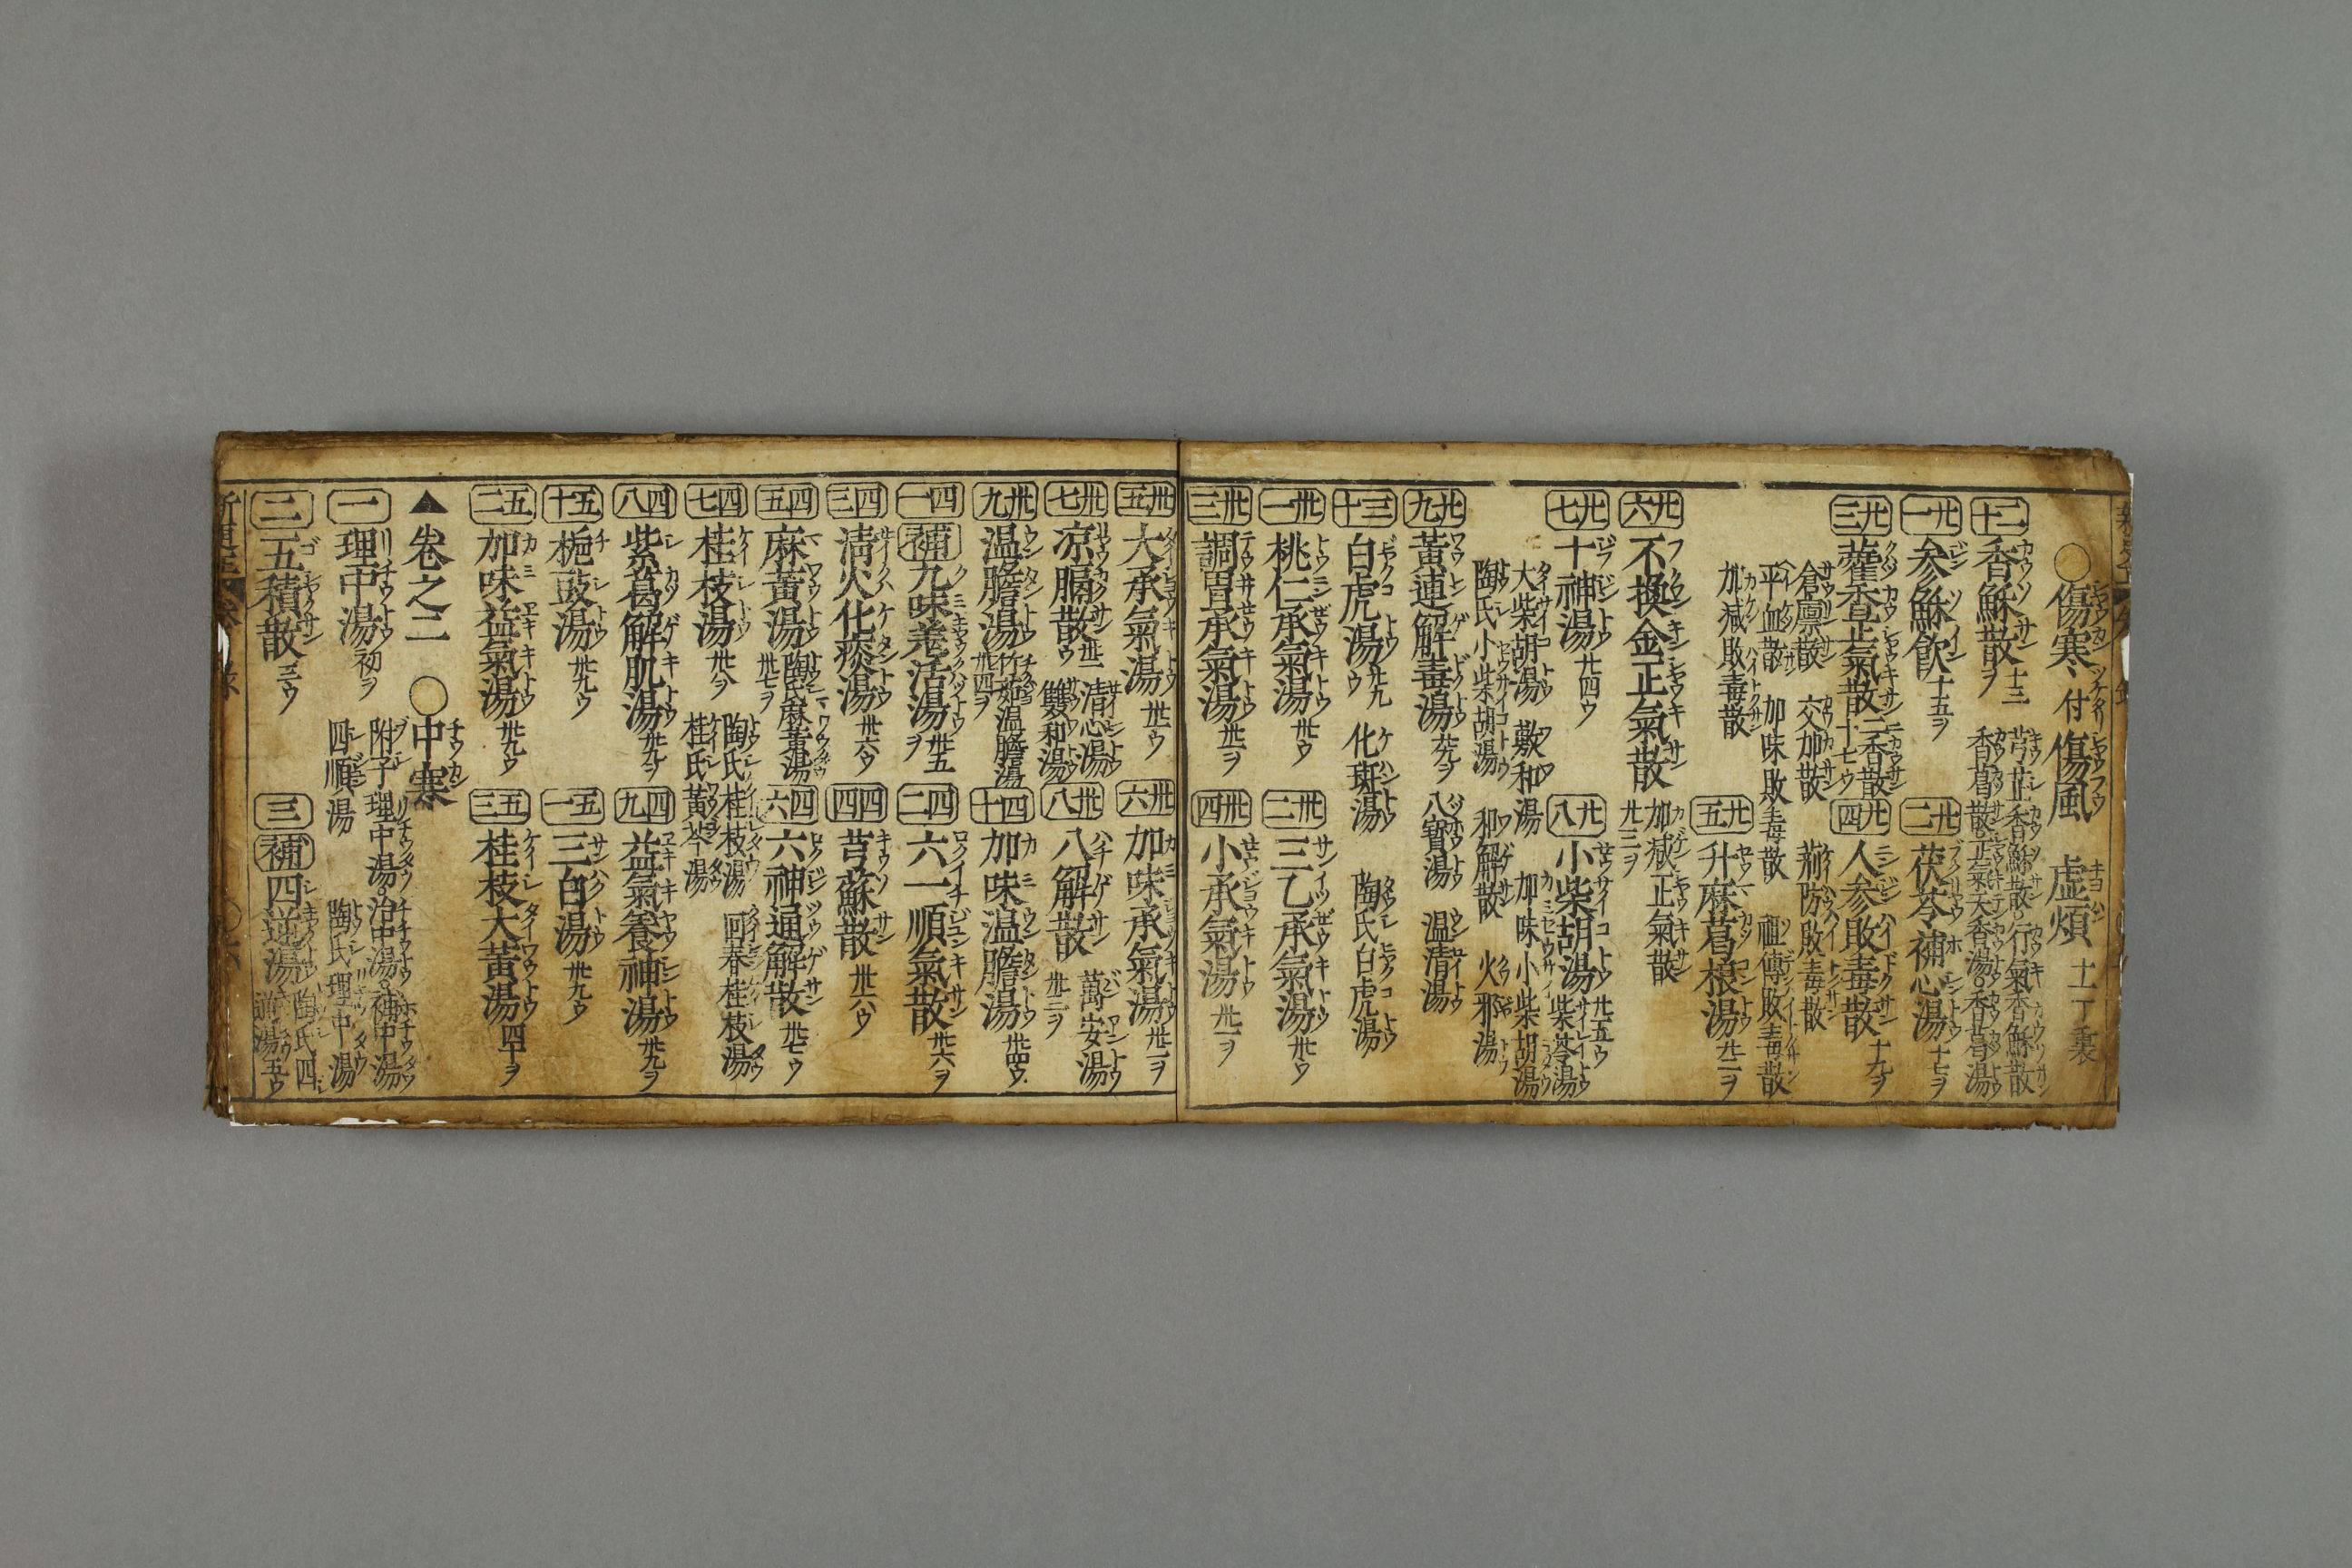 ○傷寒 付傷風 虚煩 十一丁裏
二十 香蘇散 十三ヲ 芎芷香蘇散 行氣香蘇散
香葛散 正氣天香湯 香葛湯
廿一 参蘇飲 十五ヲ 廿二 茯苓補心湯 十七ヲ
廿三 藿香正氣散 十七ウ 二香散 廿四 人参敗毒散 十九ヲ
倉廩散 交加散 荊防敗毒散
平血散 加味敗毒散 祖傳敗毒散
加減敗毒散 廿五 升麻葛根湯 廿二ヲ
不換金正氣散 廿三ヲ 加減正氣散
廿六
廿七 十神湯 廿四ウ 廿八 小柴胡湯 廿五ウ 柴苓湯
大柴胡湯 敷和湯 加味小柴胡湯
陶氏小柴胡湯 和解散 火邪湯
廿九 黄連解毒湯 廿九ヲ 八寶湯 温清湯
三十 白虎湯 廿九ウ 化斑湯 陶氏白虎湯
卅一 桃仁承氣湯 卅ウ 卅二 三乙承氣湯 卅ウ
卅三 調胃承氣湯 卅一ヲ 卅四 小承氣湯 卅一ヲ
卅五 大承氣湯 卅一ウ 卅六 加味承氣湯 卅二ヲ
卅七 凉膈散 卅二ウ 清心湯 雙和湯 卅八 八解散 卅三ヲ 萬安湯
卅九 温膽湯 卅四ヲ 竹茹温膽湯 四十 加味温膽湯 卅四ウ
四一 補 九味羌活湯 卅五ヲ 四二 六一順氣散 卅六ヲ
四三 清火化痰湯 卅六ウ 四四 芎蘇散 卅六ウ
四五 麻黄湯 卅七ヲ 陶氏麻黄湯 四六 六神通解散 卅七ウ
四七 桂枝湯 卅八 陶氏桂枝湯 回春桂枝湯
桂氏黄芩湯
四八 紫葛解肌湯 卅九ヲ 四九 益氣養神湯 卅九ヲ
五十 梔豉湯 卅九ウ 五一 三白湯 卅九ウ
五二 加味益氣湯 卅九ウ 五三 桂枝大黄湯 四十ヲ
▲巻之二 ○中寒
一 理中湯 初ヲ 附子理中湯 治中湯 補中湯
四順湯 陶氏理中湯
二 五積散 三ウ 三 補 四逆湯 陶氏四逆湯 五ウ